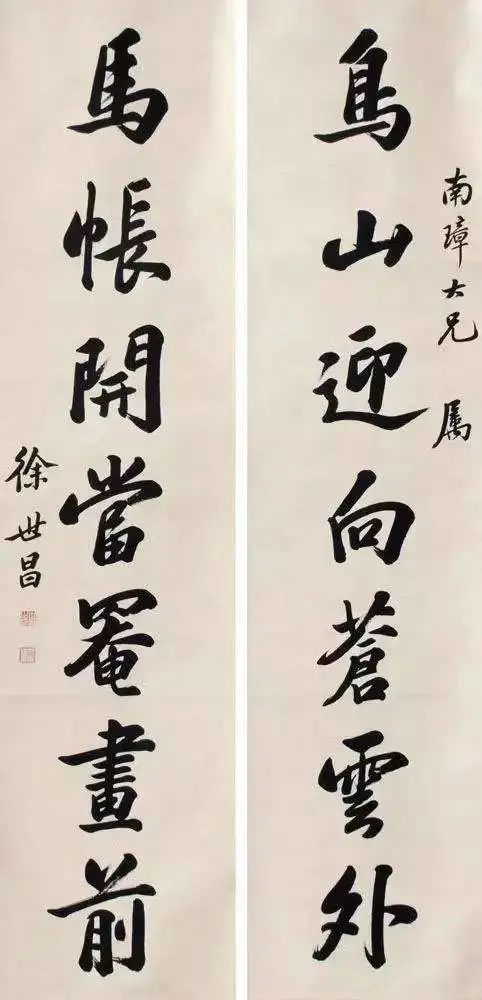 南璋大兄 属
鳧山迎向蒼雲外
馬帳開當罨畫前
徐世昌